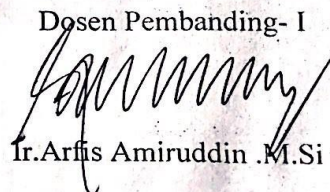 Dosen Pembanding- I
Ir.Arfis Amiruddin .M.Si